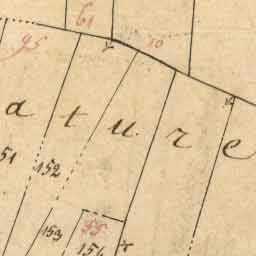 61
95
10
a t u r e
51
152
153
55
154